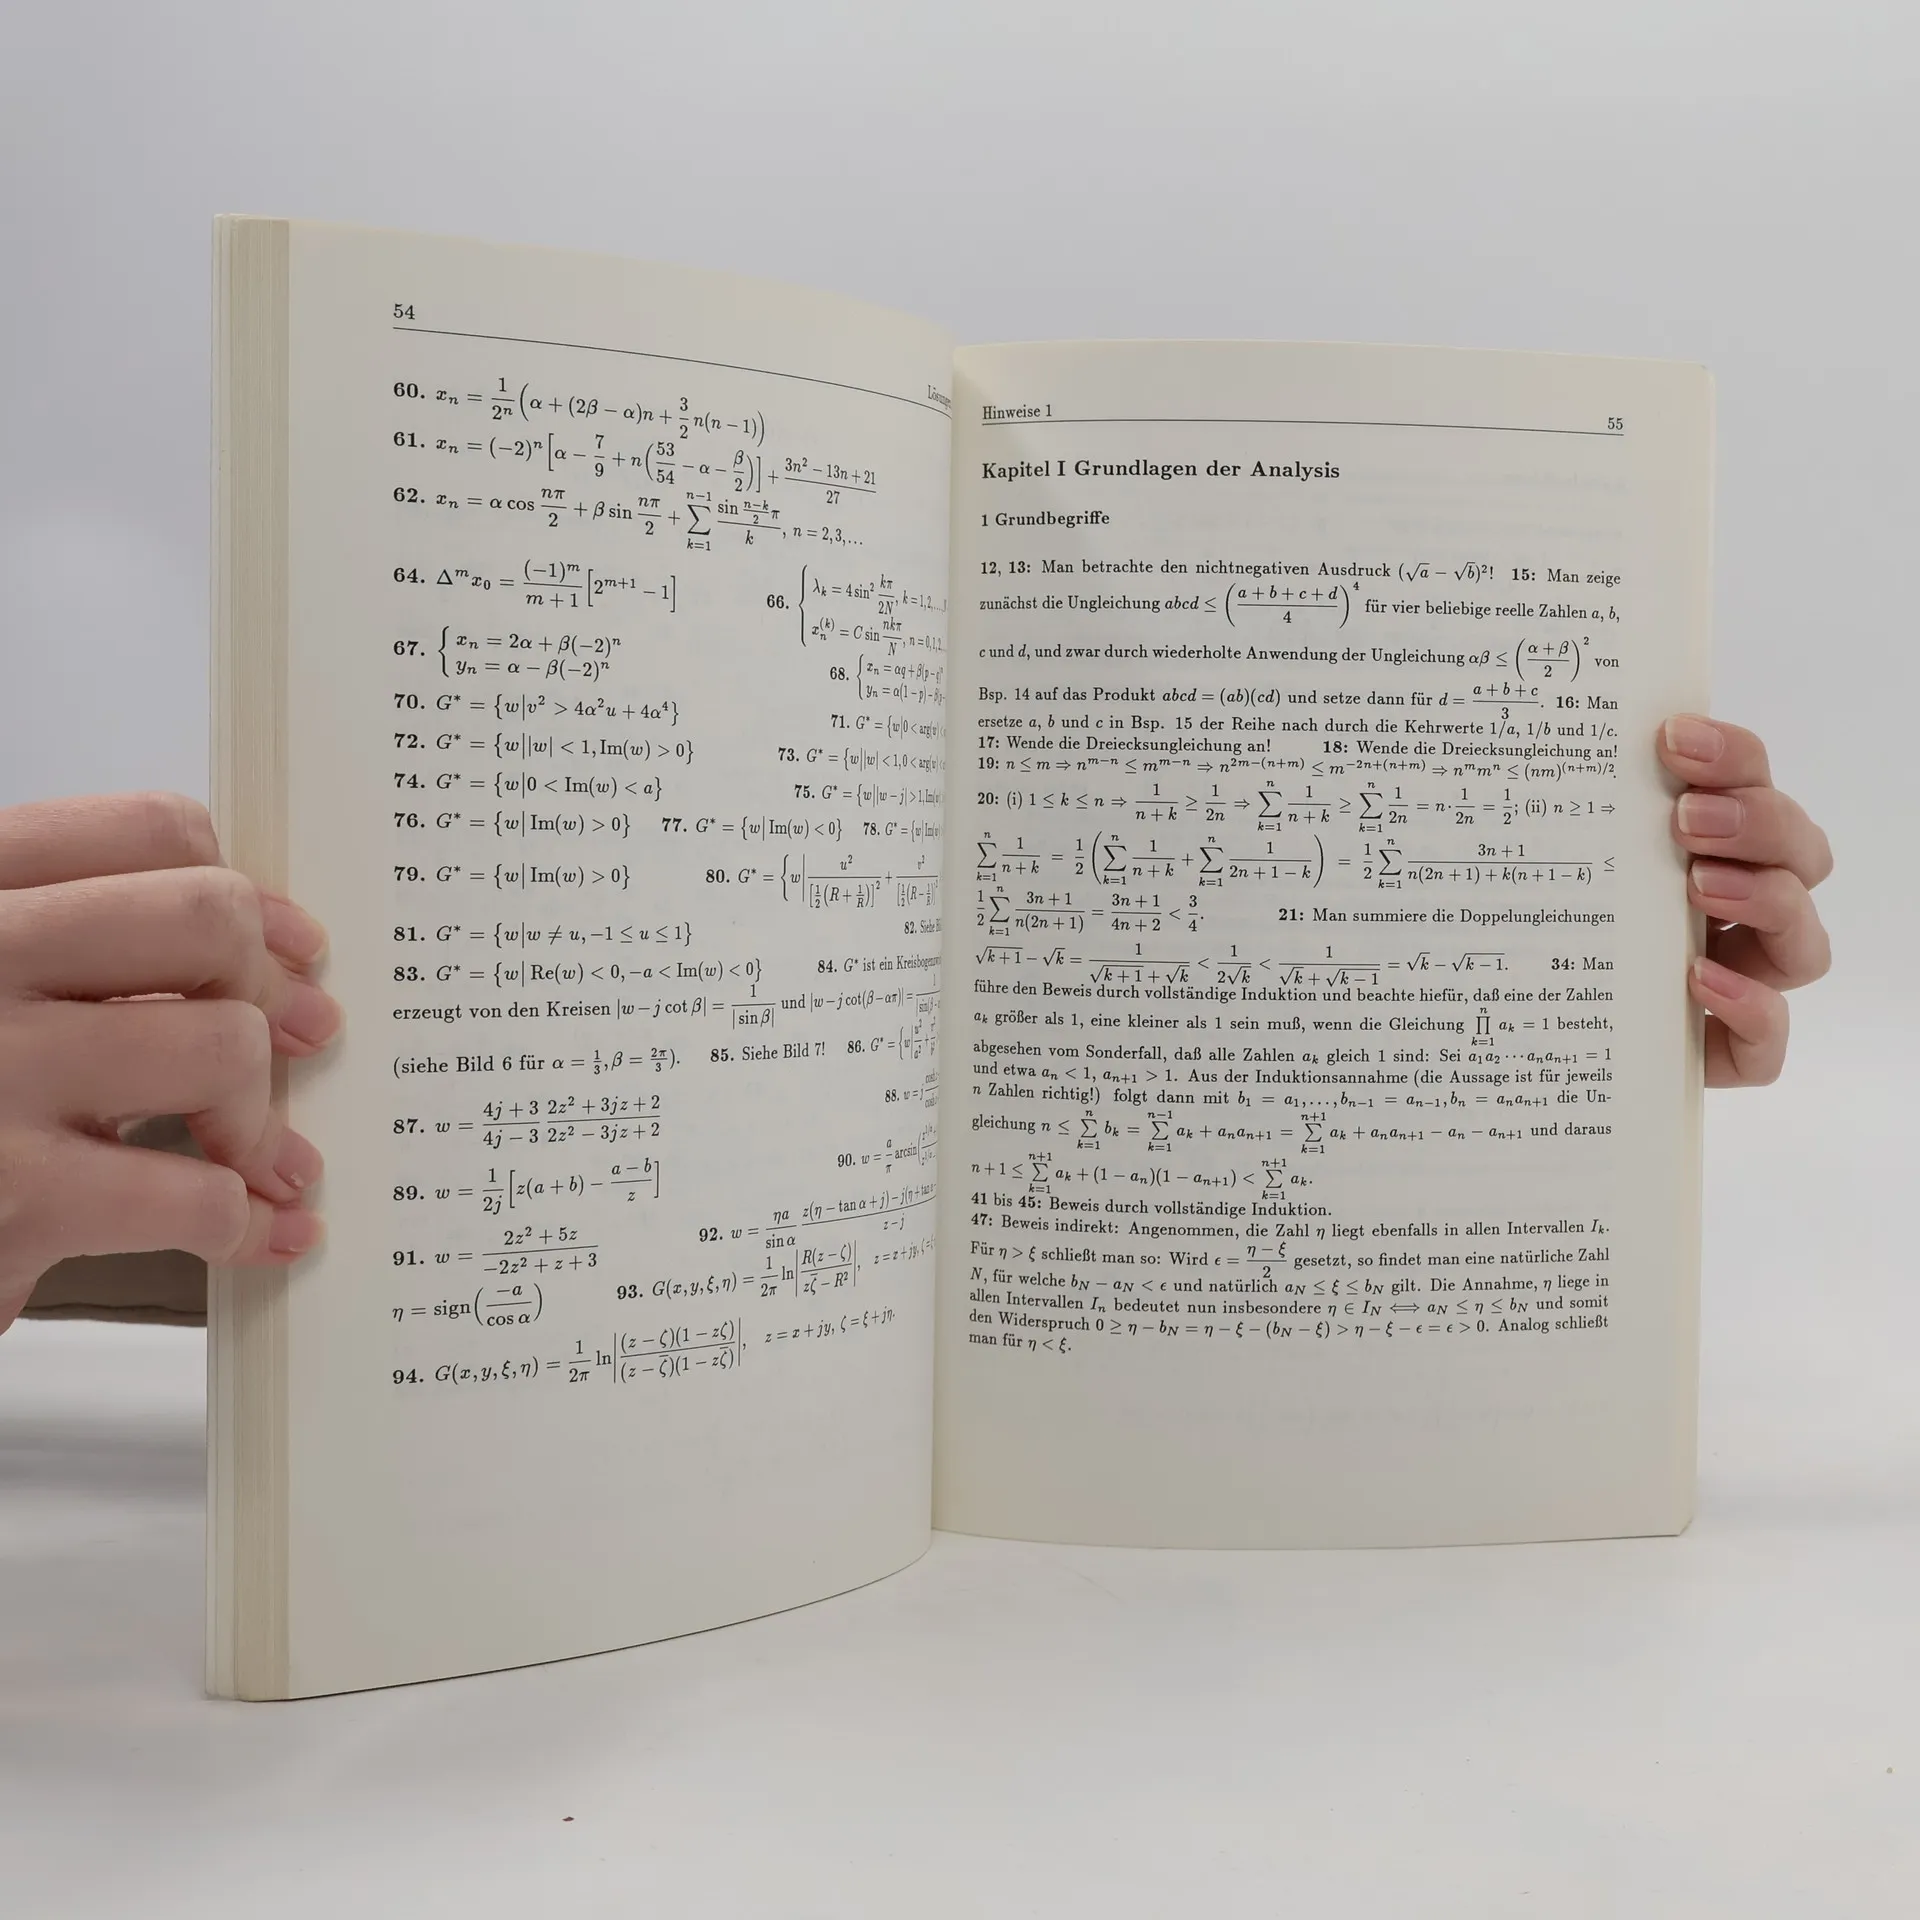 54
60. xₙ = 1/2ⁿ (α + (2β − α)n + 3/2 n(n − 1))
61. xₙ = (−2)ⁿ [α − 7/9 + n(53/54 − α − β/2)] + (3n² − 13n + 21)/27
62. xₙ = α cos nπ/2 + β sin nπ/2 + ∑_{k=1}^{n−1} (sin (n−k)/2 π)/k, n = 2,3,…
64. Δᵐx₀ = (−1)ᵐ/(m + 1) [2^{m+1} − 1] 66. { λₖ = 4 sin² kπ/2N, k = 1,2,…
xₙ^{(k)} = C sin nkπ/N, n = 0,1,2,…
67. { xₙ = 2α + β(−2)ⁿ
yₙ = α − β(−2)ⁿ
68. { xₙ = αq + β(p − q)ⁿ
yₙ = α(1 − p) − β(p −
70. G* = {w|v² > 4α²u + 4α⁴} 71. G* = {w|0 < arg(w) <
72. G* = {w||w| < 1, Im(w) > 0} 73. G* = {w||w| < 1, 0 < arg(w) <
74. G* = {w|0 < Im(w) < a} 75. G* = {w||w − j| > 1, Im(w)
76. G* = {w| Im(w) > 0} 77. G* = {w| Im(w) < 0} 78. G* = {w| Im(w)
79. G* = {w| Im(w) > 0} 80. G* = {w| u²/[½(R + 1/R)]² + v²/[½(R − 1/R)]²
81. G* = {w|w ≠ u, −1 ≤ u ≤ 1} 82. Siehe
83. G* = {w| Re(w) < 0, −a < Im(w) < 0} 84. G* ist ein
erzeugt von den Kreisen |w − j cot β| = 1/|sin β| und |w − j cot(β − απ)| =
(siehe Bild 6 für α = 1/3, β = 2π/3). 85. Siehe Bild 7! 86. G* = {w| u²/a² +
87. w = (4j + 3)/(4j − 3) (2z² + 3jz + 2)/(2z² − 3jz + 2) 88. w = j
89. w = 1/2j [z(a + b) − (a − b)/z] 90. w = a/π arcsin
91. w = (2z² + 5z)/(−2z² + z + 3) 92. w = ηa/sin α (z(η − tan α + j) − j(η + tan α)/(z − j)
η = sign(−a/cos α) 93. G(x, y, ξ, η) = 1/2π ln|R(z − ζ)/(zζ̄ − R²)|, z = x + jy, ζ = ξ
94. G(x, y, ξ, η) = 1/2π ln|(z − ζ)(1 − zζ)/(z − ζ̄)(1 − zζ̄)|, z = x + jy, ζ = ξ + jη.
Hinweise 1 55
Kapitel I Grundlagen der Analysis
1 Grundbegriffe
12, 13: Man betrachte den nichtnegativen Ausdruck (√a − √b)²! 15: Man zeige
zunächst die Ungleichung abcd ≤ ((a + b + c + d)/4)⁴ für vier beliebige reelle Zahlen a, b,
c und d, und zwar durch wiederholte Anwendung der Ungleichung αβ ≤ ((α + β)/2)² von
Bsp. 14 auf das Produkt abcd = (ab)(cd) und setze dann für d = (a + b + c)/3. 16: Man
ersetze a, b und c in Bsp. 15 der Reihe nach durch die Kehrwerte 1/a, 1/b und 1/c.
17: Wende die Dreiecksungleichung an! 18: Wende die Dreiecksungleichung an!
19: n ≤ m ⇒ n^{m−n} ≤ m^{m−n} ⇒ n^{2m−(n+m)} ≤ m^{−2n+(n+m)} ⇒ nᵐmⁿ ≤ (nm)^{(n+m)/2}.
20: (i) 1 ≤ k ≤ n ⇒ 1/(n + k) ≥ 1/2n ⇒ ∑_{k=1}^{n} 1/(n + k) ≥ ∑_{k=1}^{n} 1/2n = n·1/2n = 1/2; (ii) n ≥ 1 ⇒
∑_{k=1}^{n} 1/(n + k) = 1/2 (∑_{k=1}^{n} 1/(n + k) + ∑_{k=1}^{n} 1/(2n + 1 − k)) = 1/2 ∑_{k=1}^{n} (3n + 1)/(n(2n + 1) + k(n + 1 − k)) ≤
1/2 ∑_{k=1}^{n} (3n + 1)/(n(2n + 1)) = (3n + 1)/(4n + 2) < 3/4. 21: Man summiere die Doppelungleichungen
√(k + 1) − √k = 1/(√(k + 1) + √k) < 1/(2√k) < 1/(√k + √(k − 1)) = √k − √(k − 1). 34: Man
führe den Beweis durch vollständige Induktion und beachte hiefür, daß eine der Zahlen
aₖ größer als 1, eine kleiner als 1 sein muß, wenn die Gleichung ∏_{k=1}^{n} aₖ = 1 besteht,
abgesehen vom Sonderfall, daß alle Zahlen aₖ gleich 1 sind: Sei a₁a₂ ⋯ aₙaₙ₊₁ = 1
und etwa aₙ < 1, aₙ₊₁ > 1. Aus der Induktionsannahme (die Aussage ist für jeweils
n Zahlen richtig!) folgt dann mit b₁ = a₁, …, bₙ₋₁ = aₙ₋₁, bₙ = aₙaₙ₊₁ die Un-
gleichung n ≤ ∑_{k=1}^{n} bₖ = ∑_{k=1}^{n−1} aₖ + aₙaₙ₊₁ = ∑_{k=1}^{n+1} aₖ + aₙaₙ₊₁ − aₙ − aₙ₊₁ und daraus
n + 1 ≤ ∑_{k=1}^{n+1} aₖ + (1 − aₙ)(1 − aₙ₊₁) < ∑_{k=1}^{n+1} aₖ.
41 bis 45: Beweis durch vollständige Induktion.
47: Beweis indirekt: Angenommen, die Zahl η liegt ebenfalls in allen Intervallen Iₖ.
Für η > ξ schließt man so: Wird ϵ = (η − ξ)/2 gesetzt, so findet man eine natürliche Zahl
N, für welche b_N − a_N < ϵ und natürlich a_N ≤ ξ ≤ b_N gilt. Die Annahme, η liege in
allen Intervallen Iₙ bedeutet nun insbesondere η ∈ I_N ⟺ a_N ≤ η ≤ b_N und somit
den Widerspruch 0 ≥ η − b_N = η − ξ − (b_N − ξ) > η − ξ − ϵ = ϵ > 0. Analog schließt
man für η < ξ.